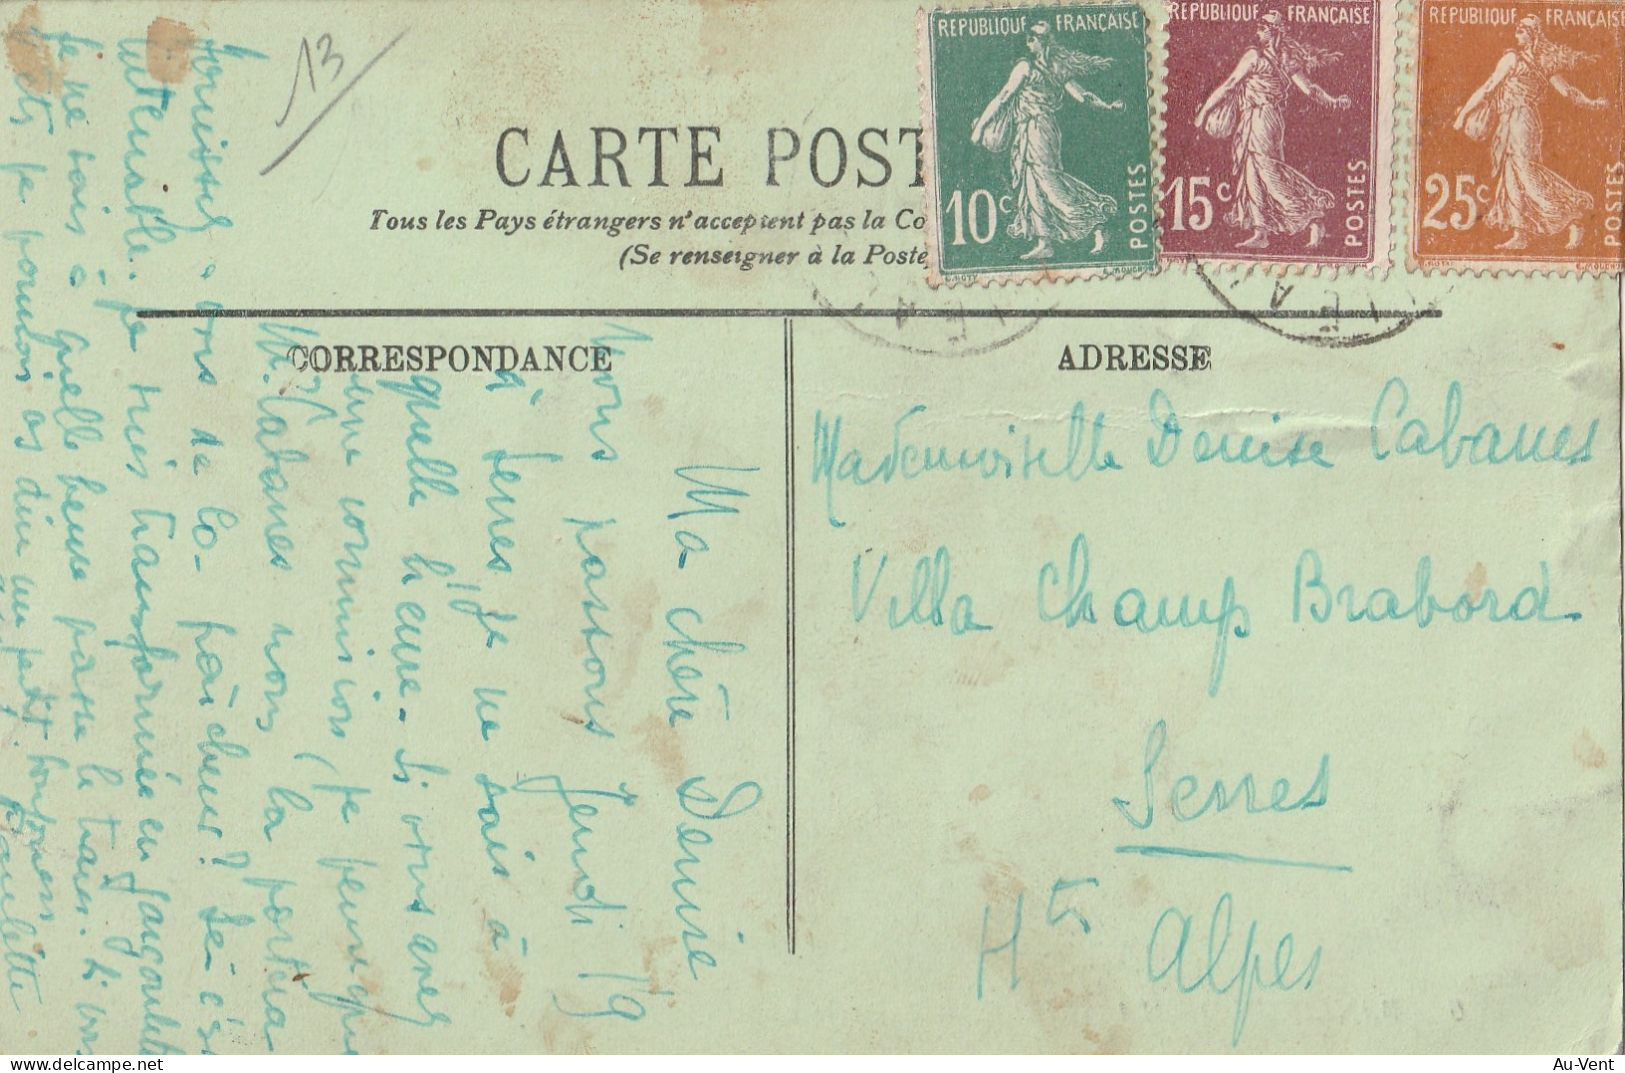 13
RÉPUBLIQUE FRANÇAISE
10c
POSTES
RÉPUBLIQUE FRANÇAISE
15c
POSTES
RÉPUBLIQUE FRANÇAISE
25c
POSTES
CARTE POST
Tous les Pays étrangers n'acceptent pas la Co
(Se renseigner à la Poste
CORRESPONDANCE
ADRESSE
Mademoiselle Denise Cabanes
Villa Champ Brabord
Serres
Htes Alpes
Ma chère Denise
Nous passons Jeudi 19
à Serres, je ne sais à
quelle heure. Si vous avez
une commission (je pense que
M. Cabanes) nous la portera
vous de la fraîcheur? Ici c'est
intenable. je suis transformée en
je ne sais à quelle heure passe le train. Si vous
y êtes je pourrai vous dire un petit bonjour
Paulette
www.delcampe.net
Au-Vent